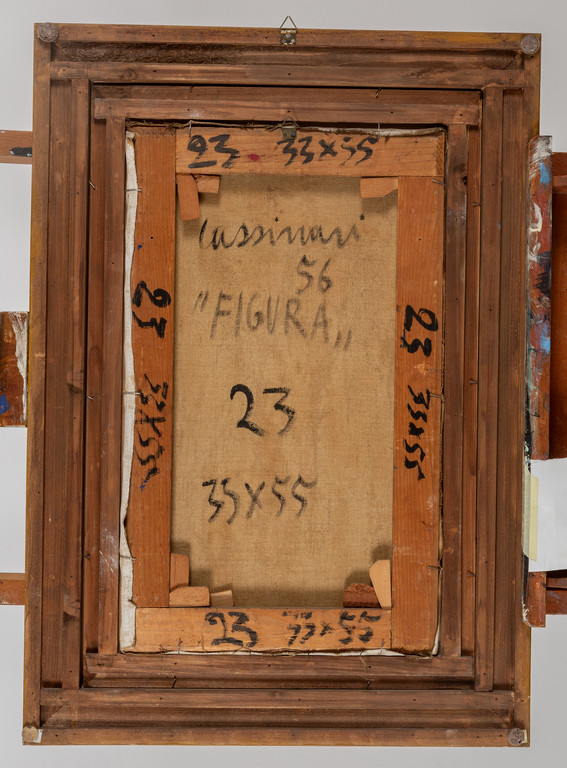 23 33x55
Cassinari
56
"FIGURA"
23
33x55
23 33x55
23 33x55
23 33x55